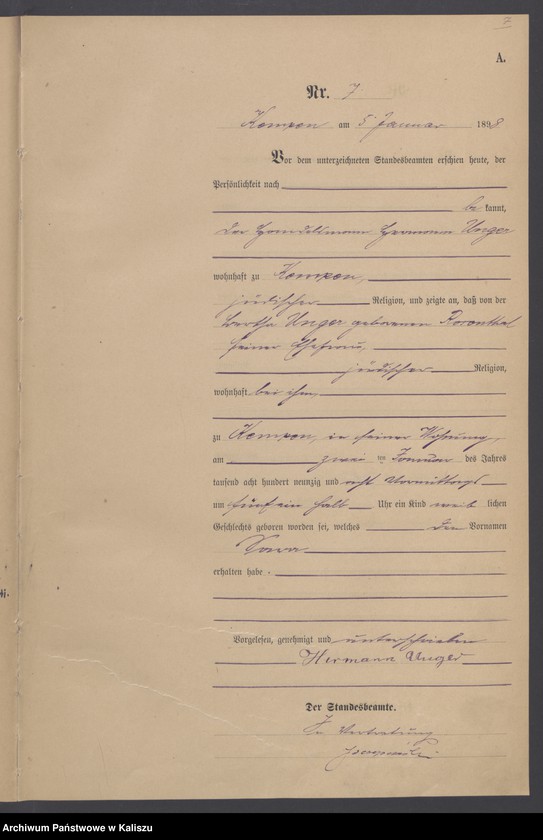 7
A.
Nr. 7
Kempen am 5 Januar 1898
Vor dem unterzeichneten Standesbeamten erschien heute, der
Persönlichkeit nach
be kannt,
der Handelsmann Hermann Unger
wohnhaft zu Kempen,
jüdischer Religion, und zeigte an, daß von der
Bertha Unger geborenen Rosenthal
seiner Ehefrau,
jüdischer Religion,
wohnhaft bei ihm,
zu Kempen, in seiner Wohnung,
am zwei ten Januar des Jahres
tausend acht hundert neunzig und acht Vormittags
um fünf ein halb Uhr ein Kind weib lichen
Geschlechts geboren worden sei, welches den Vornamen
Sara
erhalten habe.
Vorgelesen, genehmigt und unterschrieben
Hermann Unger
Der Standesbeamte.
In Vertretung
Archiwum Państwowe w Kaliszu